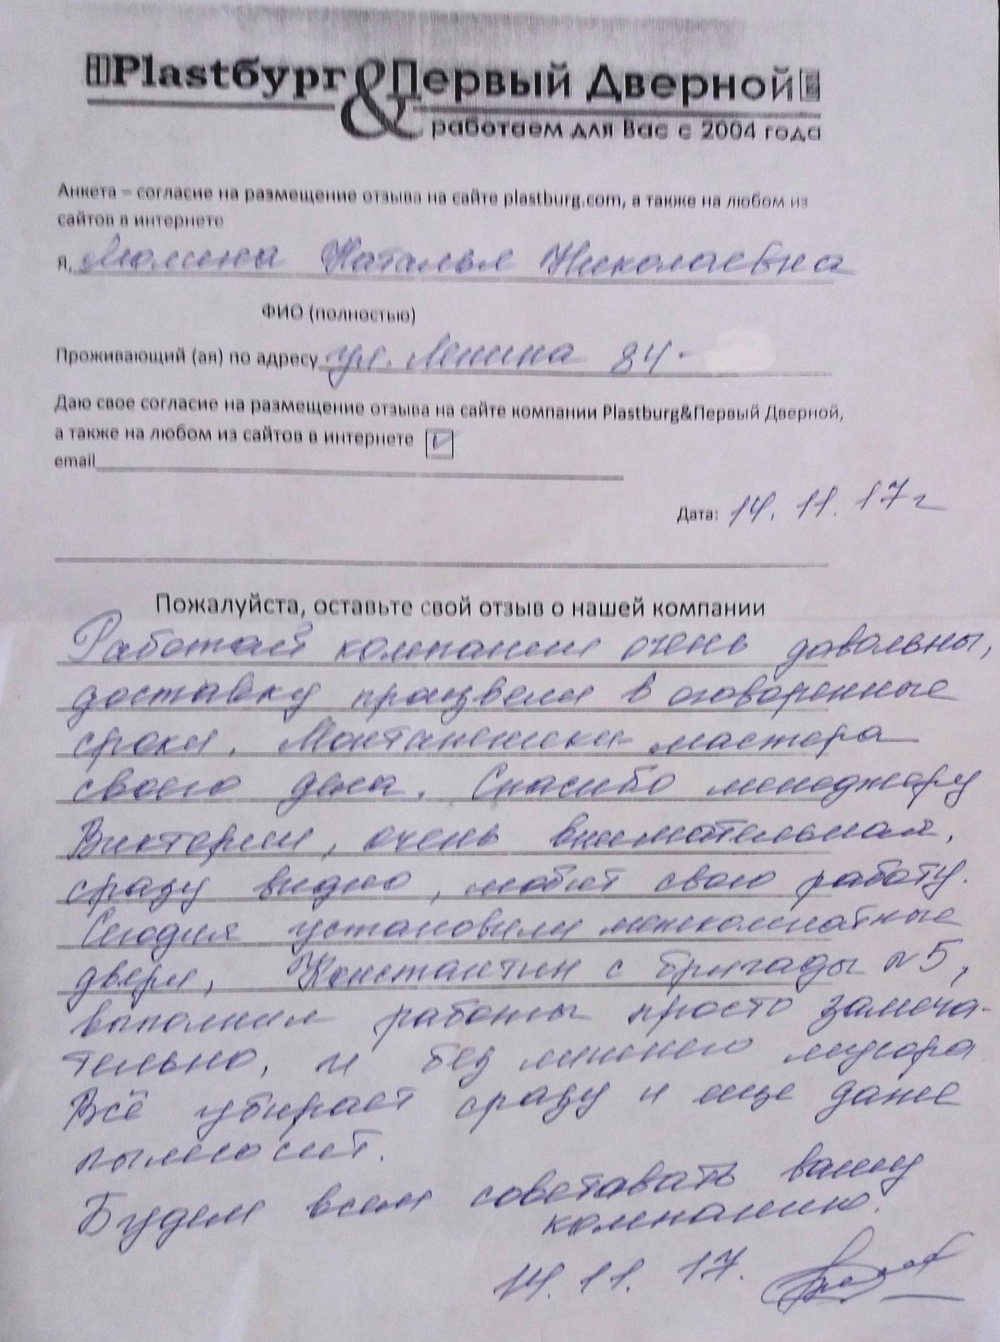 Plastбург & Первый Дверной
работаем для Вас с 2004 года
Анкета – согласие на размещение отзыва на сайте plastburg.com, а также на любом из
сайтов в интернете
Я, Наталья Николаевна
ФИО (полностью)
Проживающий (ая) по адресу ул. Ленина 84-
Даю свое согласие на размещение отзыва на сайте компании Plastburg&Первый Дверной,
а также на любом из сайтов в интернете
email
Дата: 14.11.17г
Пожалуйста, оставьте свой отзыв о нашей компании
Работай компании очень довольны,
доставку произвели в оговоренные
сроки. Монтажники мастера
своего дела. Спасибо менеджеру
Виктории, очень внимательная,
сразу видно, любит свою работу.
Сегодня установили межкомнатные
двери, Константин с бригады №5,
выполнил работы просто замеча-
тельно, и без лишнего мусора
Всё убирает сразу и еще даже
пылесосит.
Будем всем советовать вашу
компанию.
14.11.17.